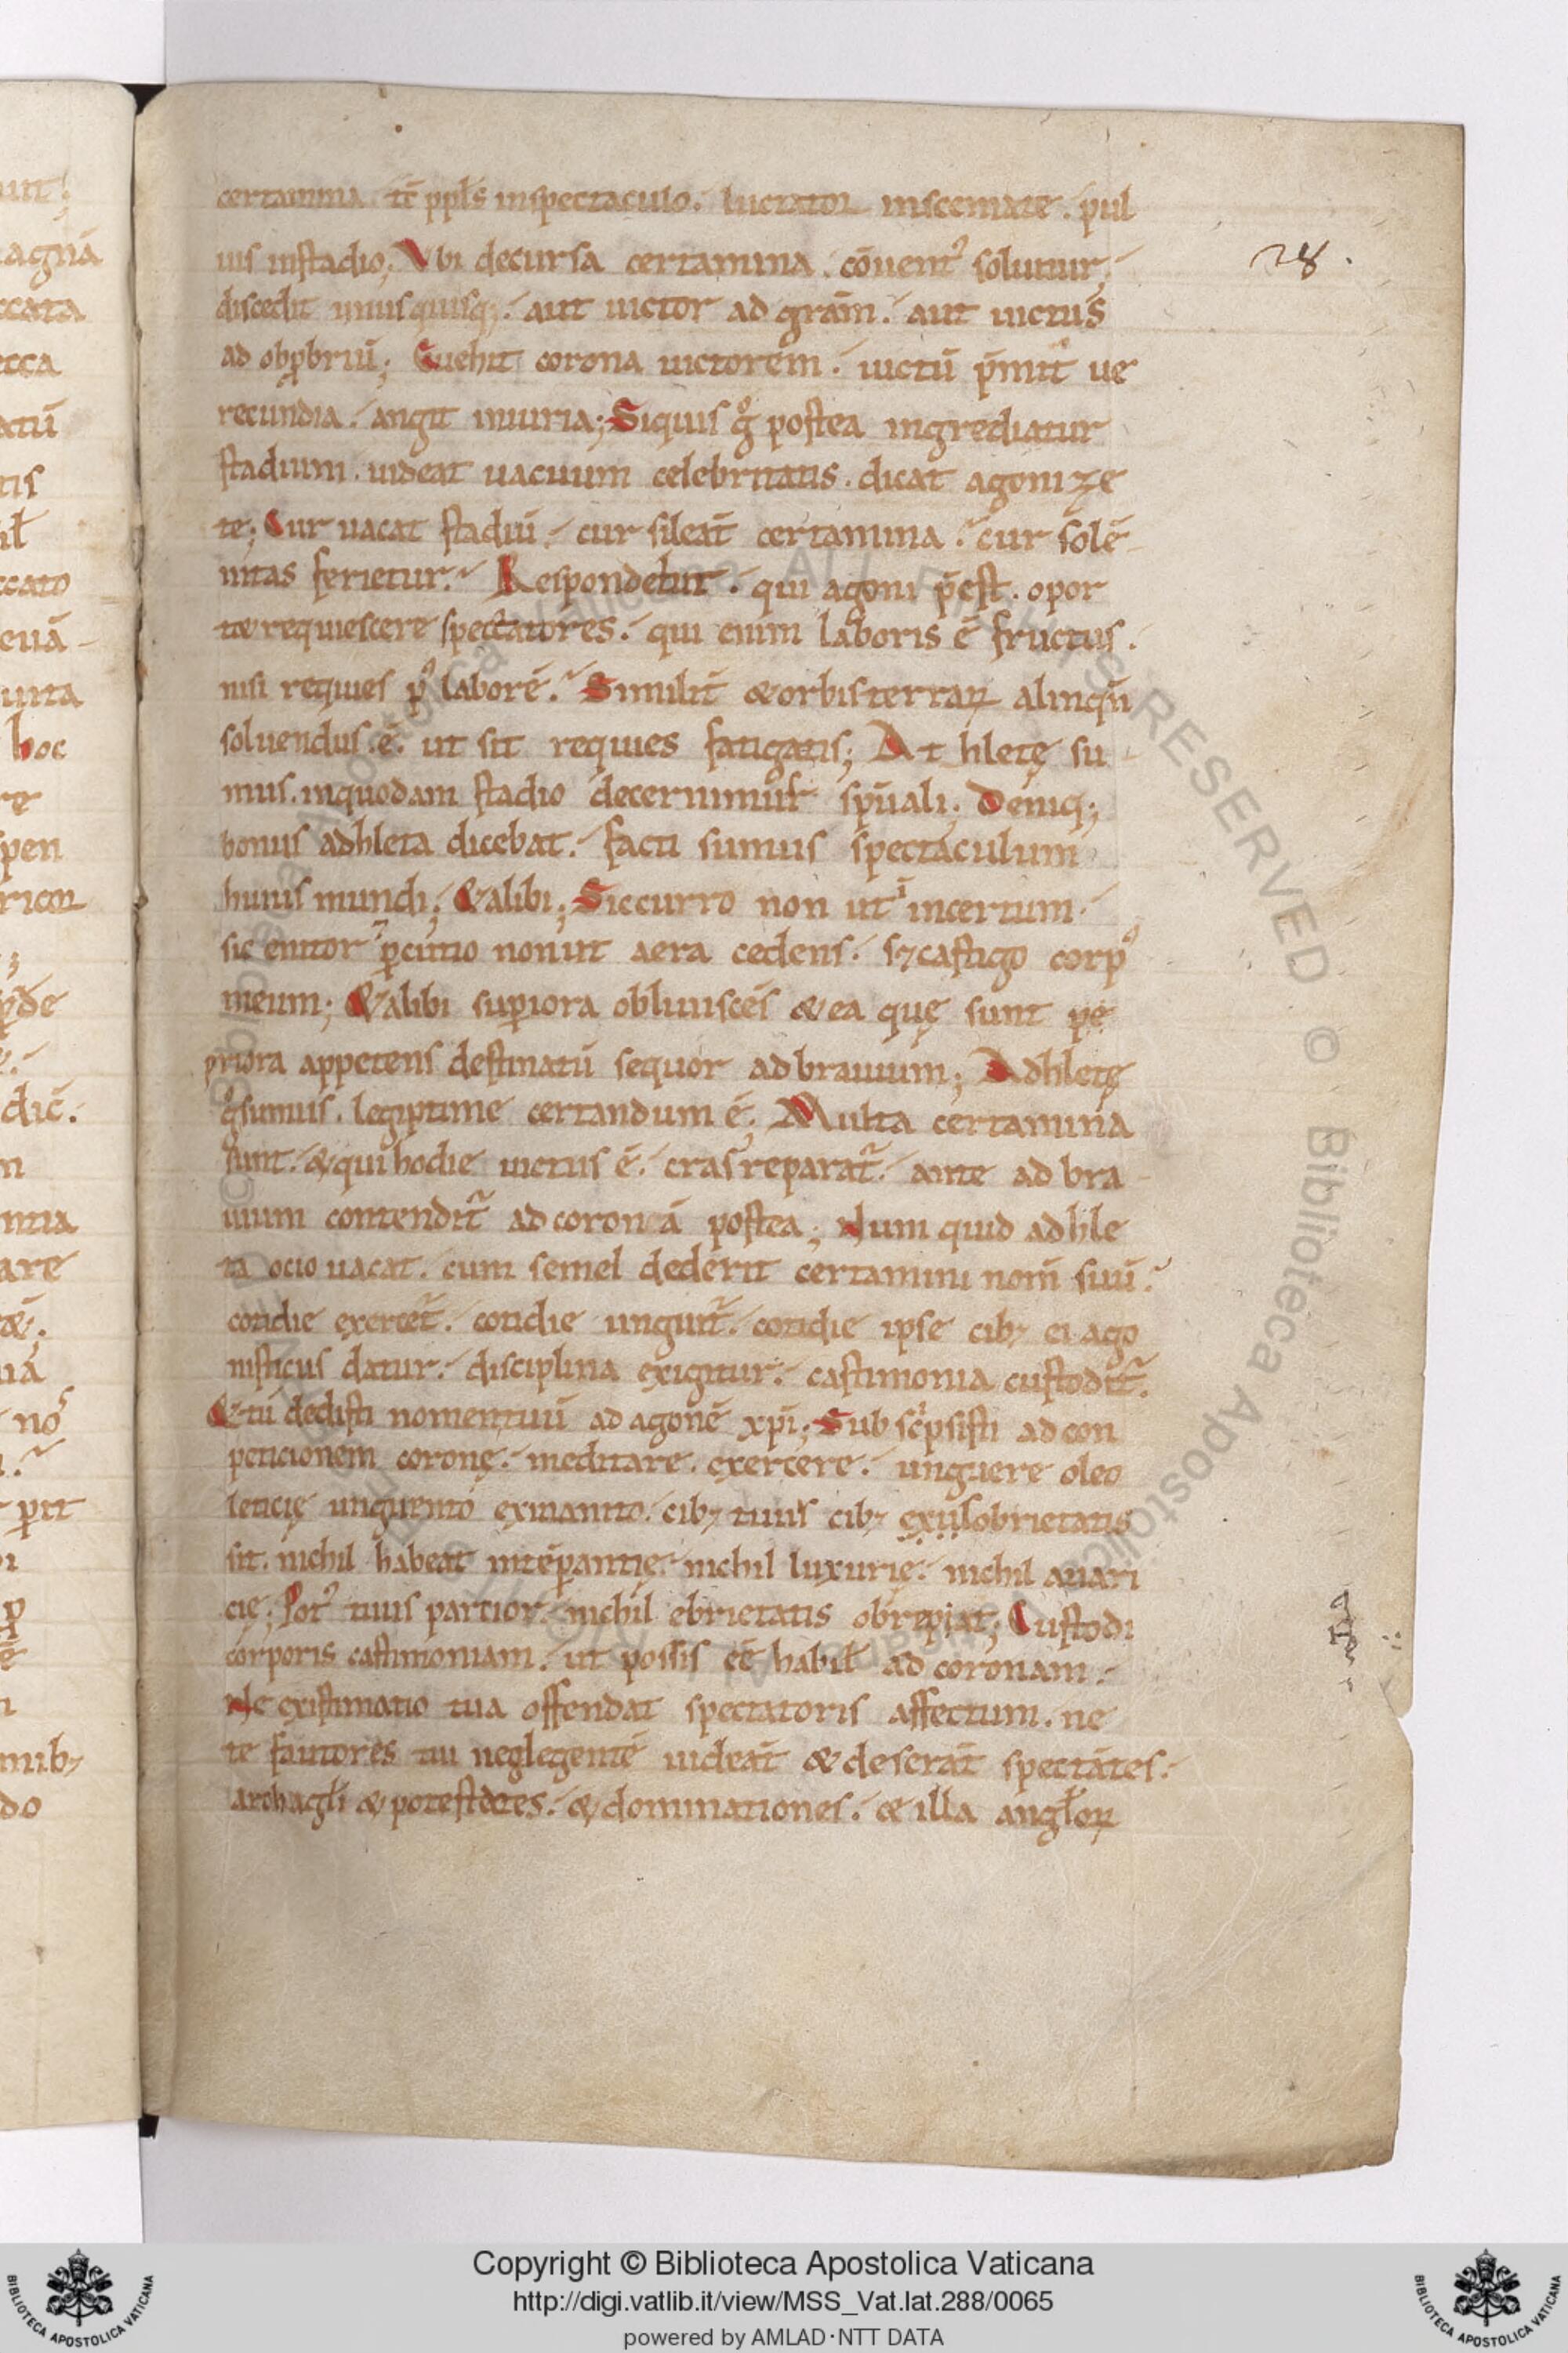 certamina tc̄ ppłs inspectaculo. luctator inscemate. pul
uis instadio; Vbi decursa certamina. cōuent᷒ soluitur;
discedit unusquisq;. aut uictor ad grām. aut uictus
ad obp̄briū; Euehit corona uictorem. uictū p̄mit ue
recundia. angit iniuria; Siquis gͦ postea ingrediatur
stadium. uideat uacuum celebritatis. dicat agonize
te; Cur uacat stadiū. cur sileāt certamina. cur solē
nitas ferietur. Respondebit. qui agoni p̄est. opor
tæ requiescere spectatores. qui enim laboris ē fructus.
nisi requies pͦ laborē. Similit̄ & orbis terraꝝ alinqn̄
soluendus.ē. ut sit requies fatigatis; At hletę su
mus. inquodam stadio decernimus sp̄uali. Deniq;
bonus adhleta dicebat. facti sumus spectaculum
huius mundi; & alibi; Siccurro non ut incertum
sic enitor p̱cutio non ut aera cedens. s; castigo corp᷒
meum; & alibi sup̱iora obliuiscēs & ea quę sunt pe
priora appetens destinatū sequor ad brauium; Adhletę
gͦ sumus. legiptime certandum ē; Multa certamina
sunt. & qui hodie uictus ē. cras reparat᷒. ante ad bra
uium contendit᷒ ad coronā postea; Num quid adhle
ta ocio uacat. cum semel dederit certamini nom̄ suū.
cotidie exercet᷒. cotidie unguit᷒. cotidie ipse cib; ei ago
nisticus datur. disciplina exigitur. castimonia custodit᷒.
& tu dedisti nomentuū ad agonē xp̄i; Sub sc̄psisti ad con
peticionem coronę. meditare. exercere. unguere oleo
leticię unguento exinanito. cib; tuus cib; exiisobrietatis
sit. nichil habeat intēp̱antię. nichil luxurię. nichil auari
cię; Pot᷒ tuus partior. nichil ebrietatis obrepiat; Custodi
corporis castimoniam. ut possis eē habił ad coronam.
Ne existimatio tua offendat spectatoris affectum. ne
te fautores tui neglegentē uideāt & deserāt spectātes.
archagłi & potestates. & dominationes. & illa angłoꝝ
28.
Copyright © Biblioteca Apostolica Vaticana
http://digi.vatlib.it/view/MSS_Vat.lat.288/0065
powered by AMLAD·NTT DATA